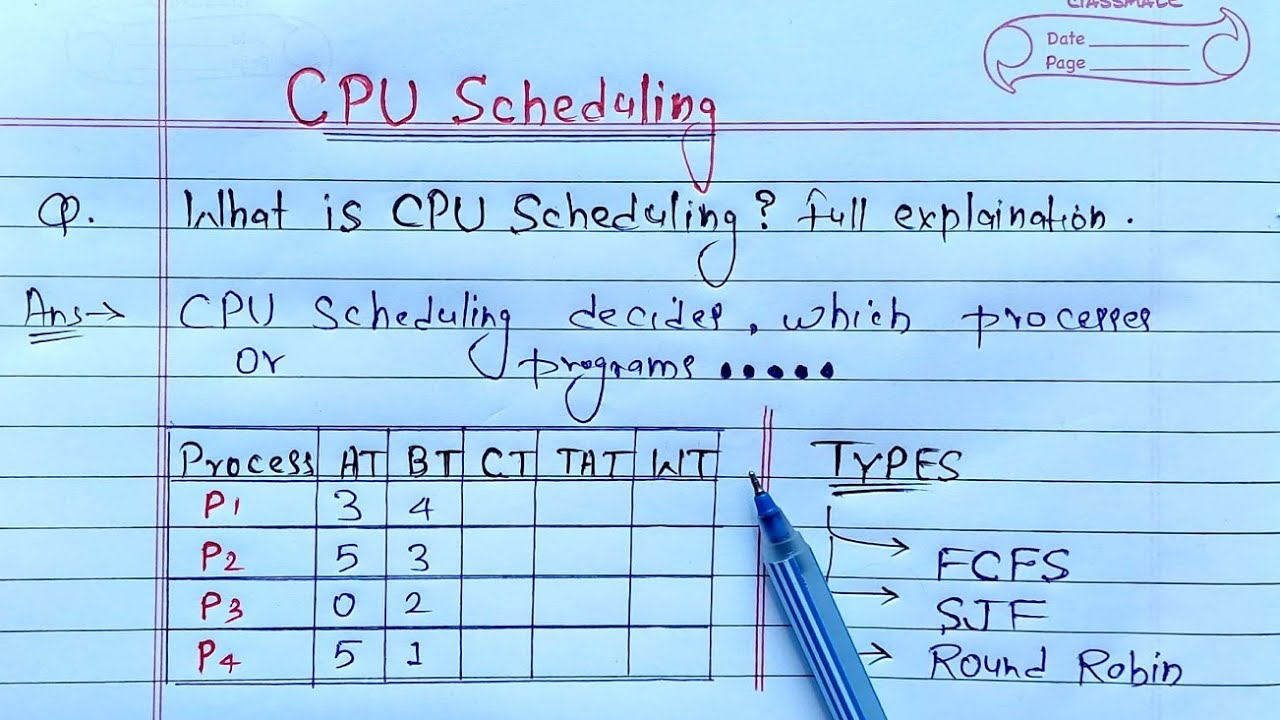 CLASSMATE
Date
Page
CPU Scheduling
Q. What is CPU Scheduling? full explaination.
Ans→ CPU Scheduling decides, which processes
or programs .....
Process AT BT CT TAT WT
P1 3 4
P2 5 3
P3 0 2
P4 5 1
TYPES
→ FCFS
→ SJF
→ Round Robin